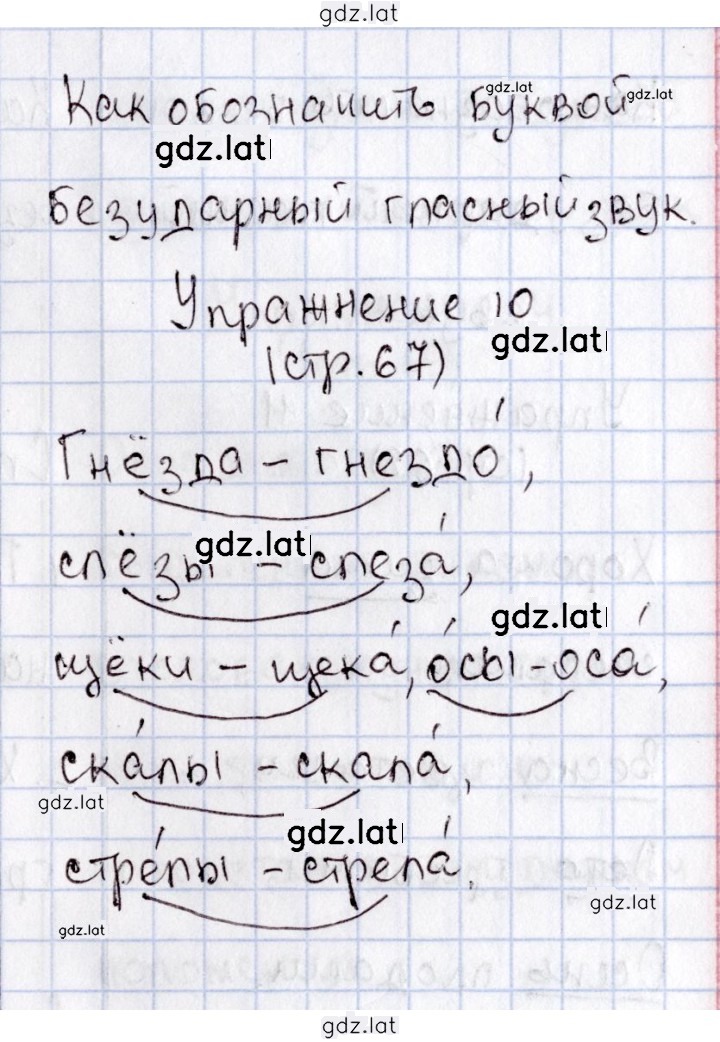 gdz.lat
Как обозначить буквой
gdz.lat
gdz.lat
gdz.lat
безударный гласный звук.
Упражнение 10
gdz.lat
(стр. 67)
Гнёзда - гнездо́,
gdz.lat
слёзы - слеза́,
gdz.lat
щёки - щека́, о́сы - оса́,
ска́лы - скала́,
gdz.lat
gdz.lat
стре́лы - стрела́.
gdz.lat
gdz.lat
gdz.lat